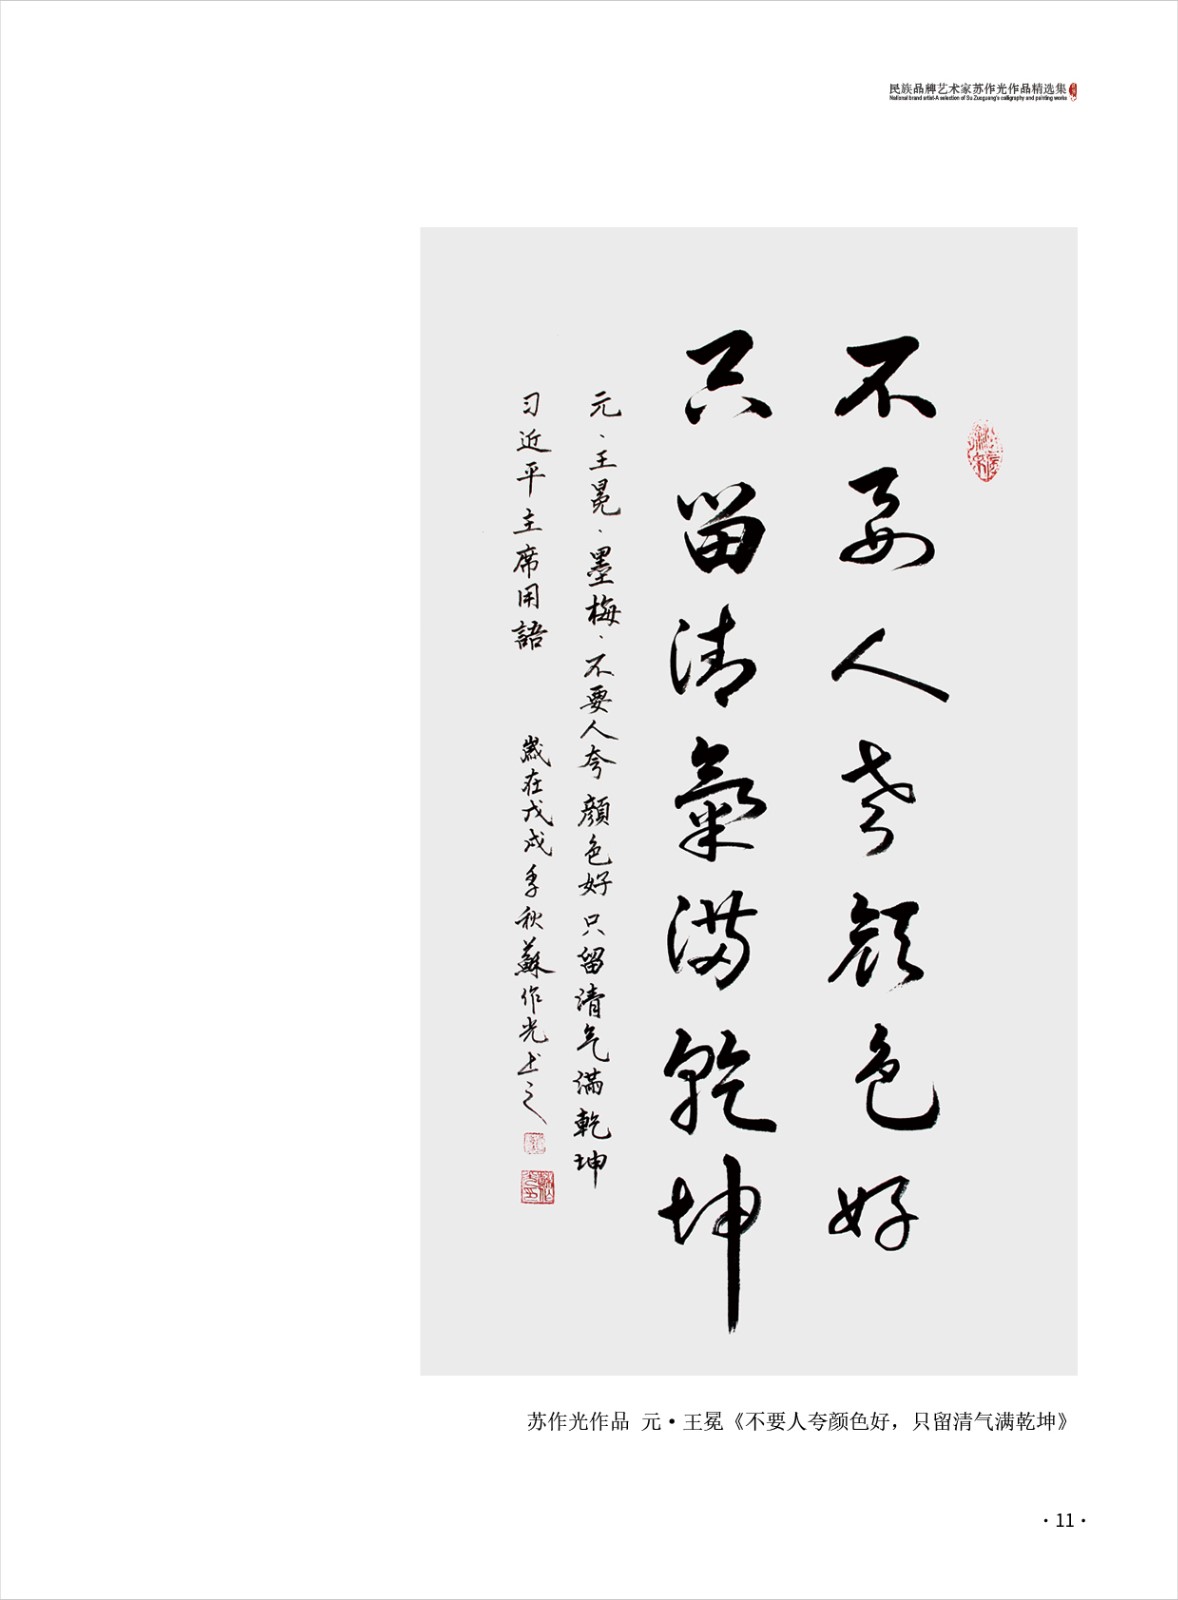 民族品牌艺术家苏作光作品精选集
National brand artist-A selection of Su Zuoguang's calligraphy and painting works
不要人夸顔色好
只留清氣满乾坤
元·王冕·墨梅·不要人夸顔色好只留清气滿乾坤
习近平主席用語 歲在戊戌季秋蘇作光书之
苏作光作品 元·王冕《不要人夸颜色好，只留清气满乾坤》
·11·